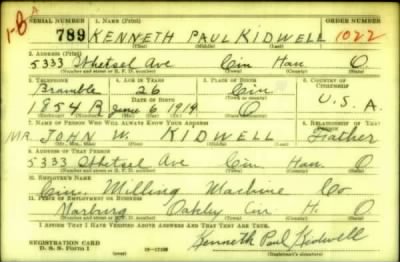 SERIAL NUMBER 1. NAME (Print) ORDER NUMBER
1-B 789 KENNETH PAUL KIDWELL 1022
(First) (Middle) (Last)
2. ADDRESS (Print)
5333 Ave Cin Han O
(Number and street or R. F. D. number) (Town) (County) (State)
3. TELEPHONE 4. AGE IN YEARS 5. PLACE OF BIRTH 6. COUNTRY OF CITIZENSHIP
Bramble 26 Cin
DATE OF BIRTH (Town or county)
1854 R June 6 1914 O U.S.A.
7. NAME OF PERSON WHO WILL ALWAYS KNOW YOUR ADDRESS 8. RELATIONSHIP OF THAT PERSON
MR. JOHN W. KIDWELL Father
(Mr., Mrs., Miss) (First) (Middle) (Last)
9. ADDRESS OF THAT PERSON
5333 Ave Cin Han O
(Number and street or R. F. D. number) (Town) (County) (State)
10. EMPLOYER'S NAME
Cin. Milling Machine Co
11. PLACE OF EMPLOYMENT OR BUSINESS
Marburg Oakley Cin H. O
(Number and street or R. F. D. number) (Town) (County) (State)
I AFFIRM THAT I HAVE VERIFIED ABOVE ANSWERS AND THAT THEY ARE TRUE.
REGISTRATION CARD
D. S. S. FORM 1 Kenneth Paul Kidwell
(Registrant's signature)